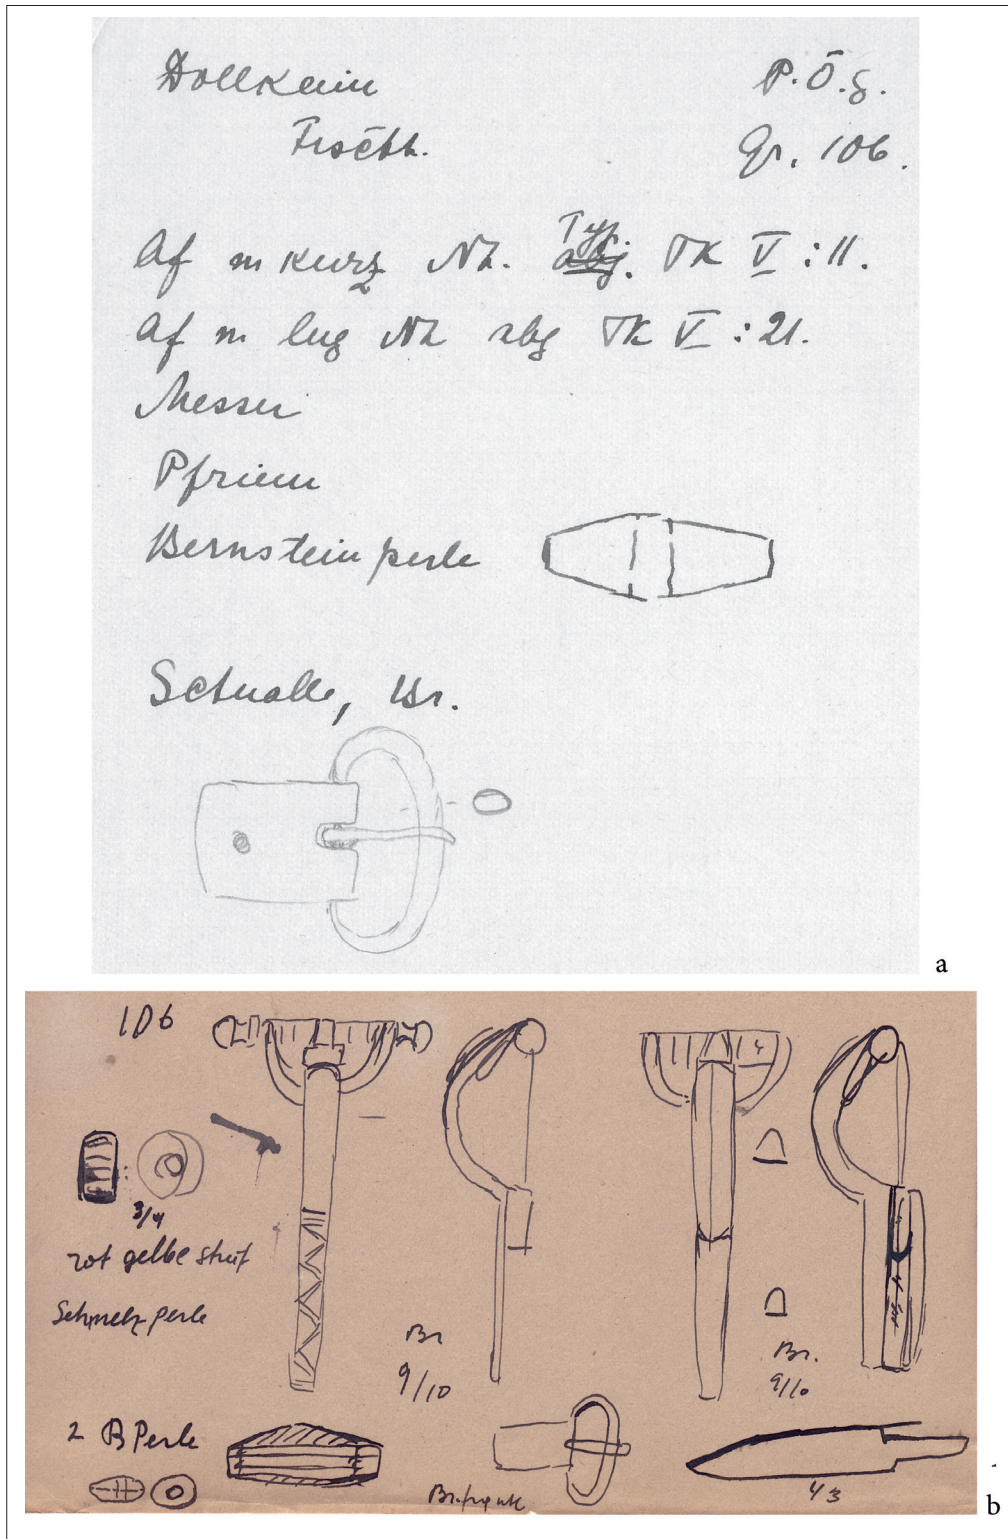 Dollkeim P.Ō.S.
Fischh. Gr. 106.
Typ.
Af m kurz Nh. abg. TK V : 11.
Af m lng Nh abg TK V : 21.
Messer
Pfriem
Bernsteinperle
Schnalle, Br.
a
106
3/4
rot gelbe
Schmelzperle
Br
9/10
Br.
9/10
2 B Perle
b